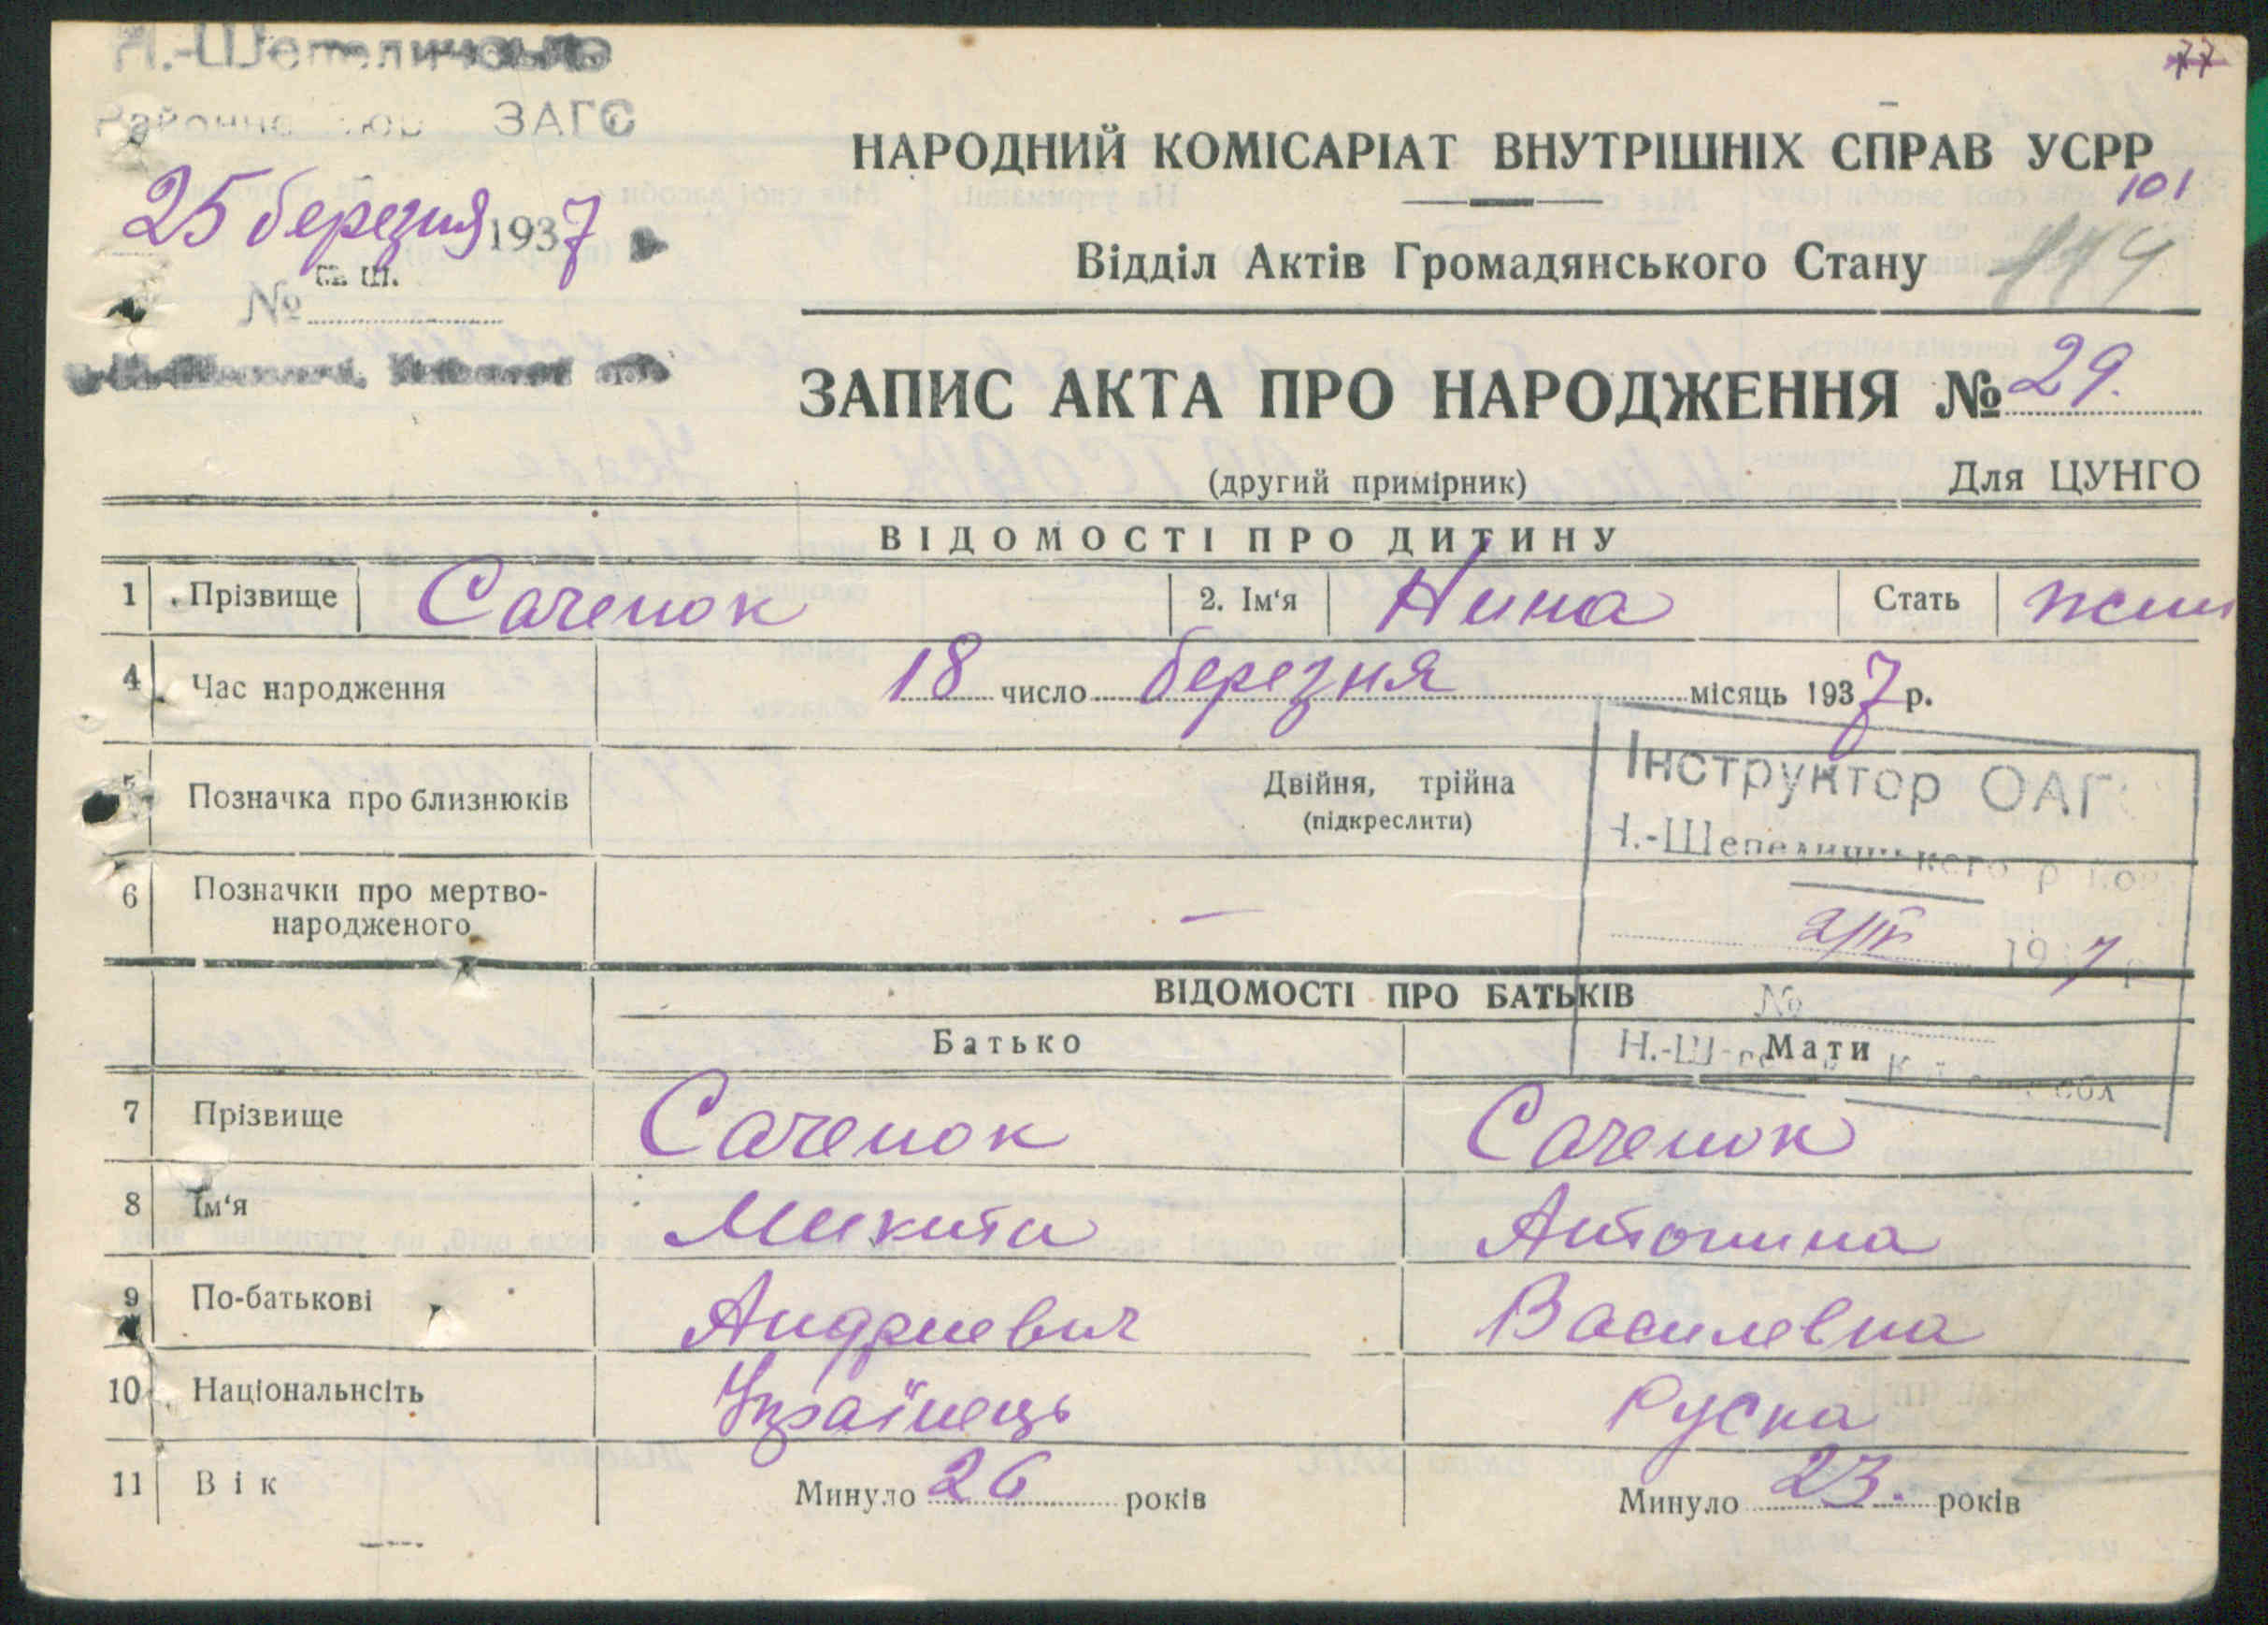 Н.-Шепелич
Районне ЗАГС
77
НАРОДНИЙ КОМІСАРІАТ ВНУТРІШНІХ СПРАВ УСРР
101
25 березня 1937
Відділ Актів Громадянського Стану
№
ЗАПИС АКТА ПРО НАРОДЖЕННЯ № 29.
(другий примірник) Для ЦУНГО
ВІДОМОСТІ ПРО ДИТИНУ
1 Прізвище Саченок 2. Ім'я Нина Стать жін
4 Час народження 18 число березня місяць 1937 р.
5 Позначка про близнюків Двійня, трійна
(підкреслити)
Інструктор ОАГ
Н.-Шепелицького
6 Позначки про мертво-
народженого —
2/IV 1937
ВІДОМОСТІ ПРО БАТЬКІВ
№
Батько Мати
Н.-Ш обл
7 Прізвище Саченок Саченок
8 Ім'я Микита Антонина
9 По-батькові Андриевич Василевна
10 Національнсіть Українець Руска
11 Вік Минуло 26 років Минуло 23. років